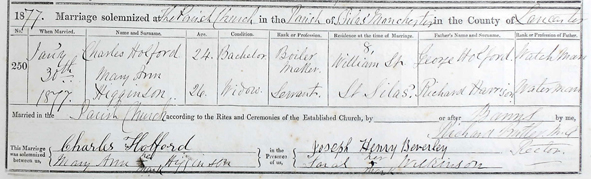 1877. Marriage solemnized at The Parish Church in the Parish of St Silas Manchester in the County of Lancaster
No. When Married. Name and Surname. Age. Condition. Rank or Profession. Residence at the time of Marriage. Father's Name and Surname. Rank or Profession of Father.
250 Jany 30th 1877. Charles Holford 24. Bachelor Boiler Maker. 8, William St George Holford Watch Man
Mary Ann Higginson 26. Widow. Servant. St Silas. Richard Harrison Water man
Married in the Parish Church according to the Rites and Ceremonies of the Established Church, by or after Banns by me,
Rector
This Marriage was solemnized between us, Charles Holford
Mary Ann her mark Higginson
in the Presence of us, Joseph Henry Beverley
Sarah her mark Wilkinson